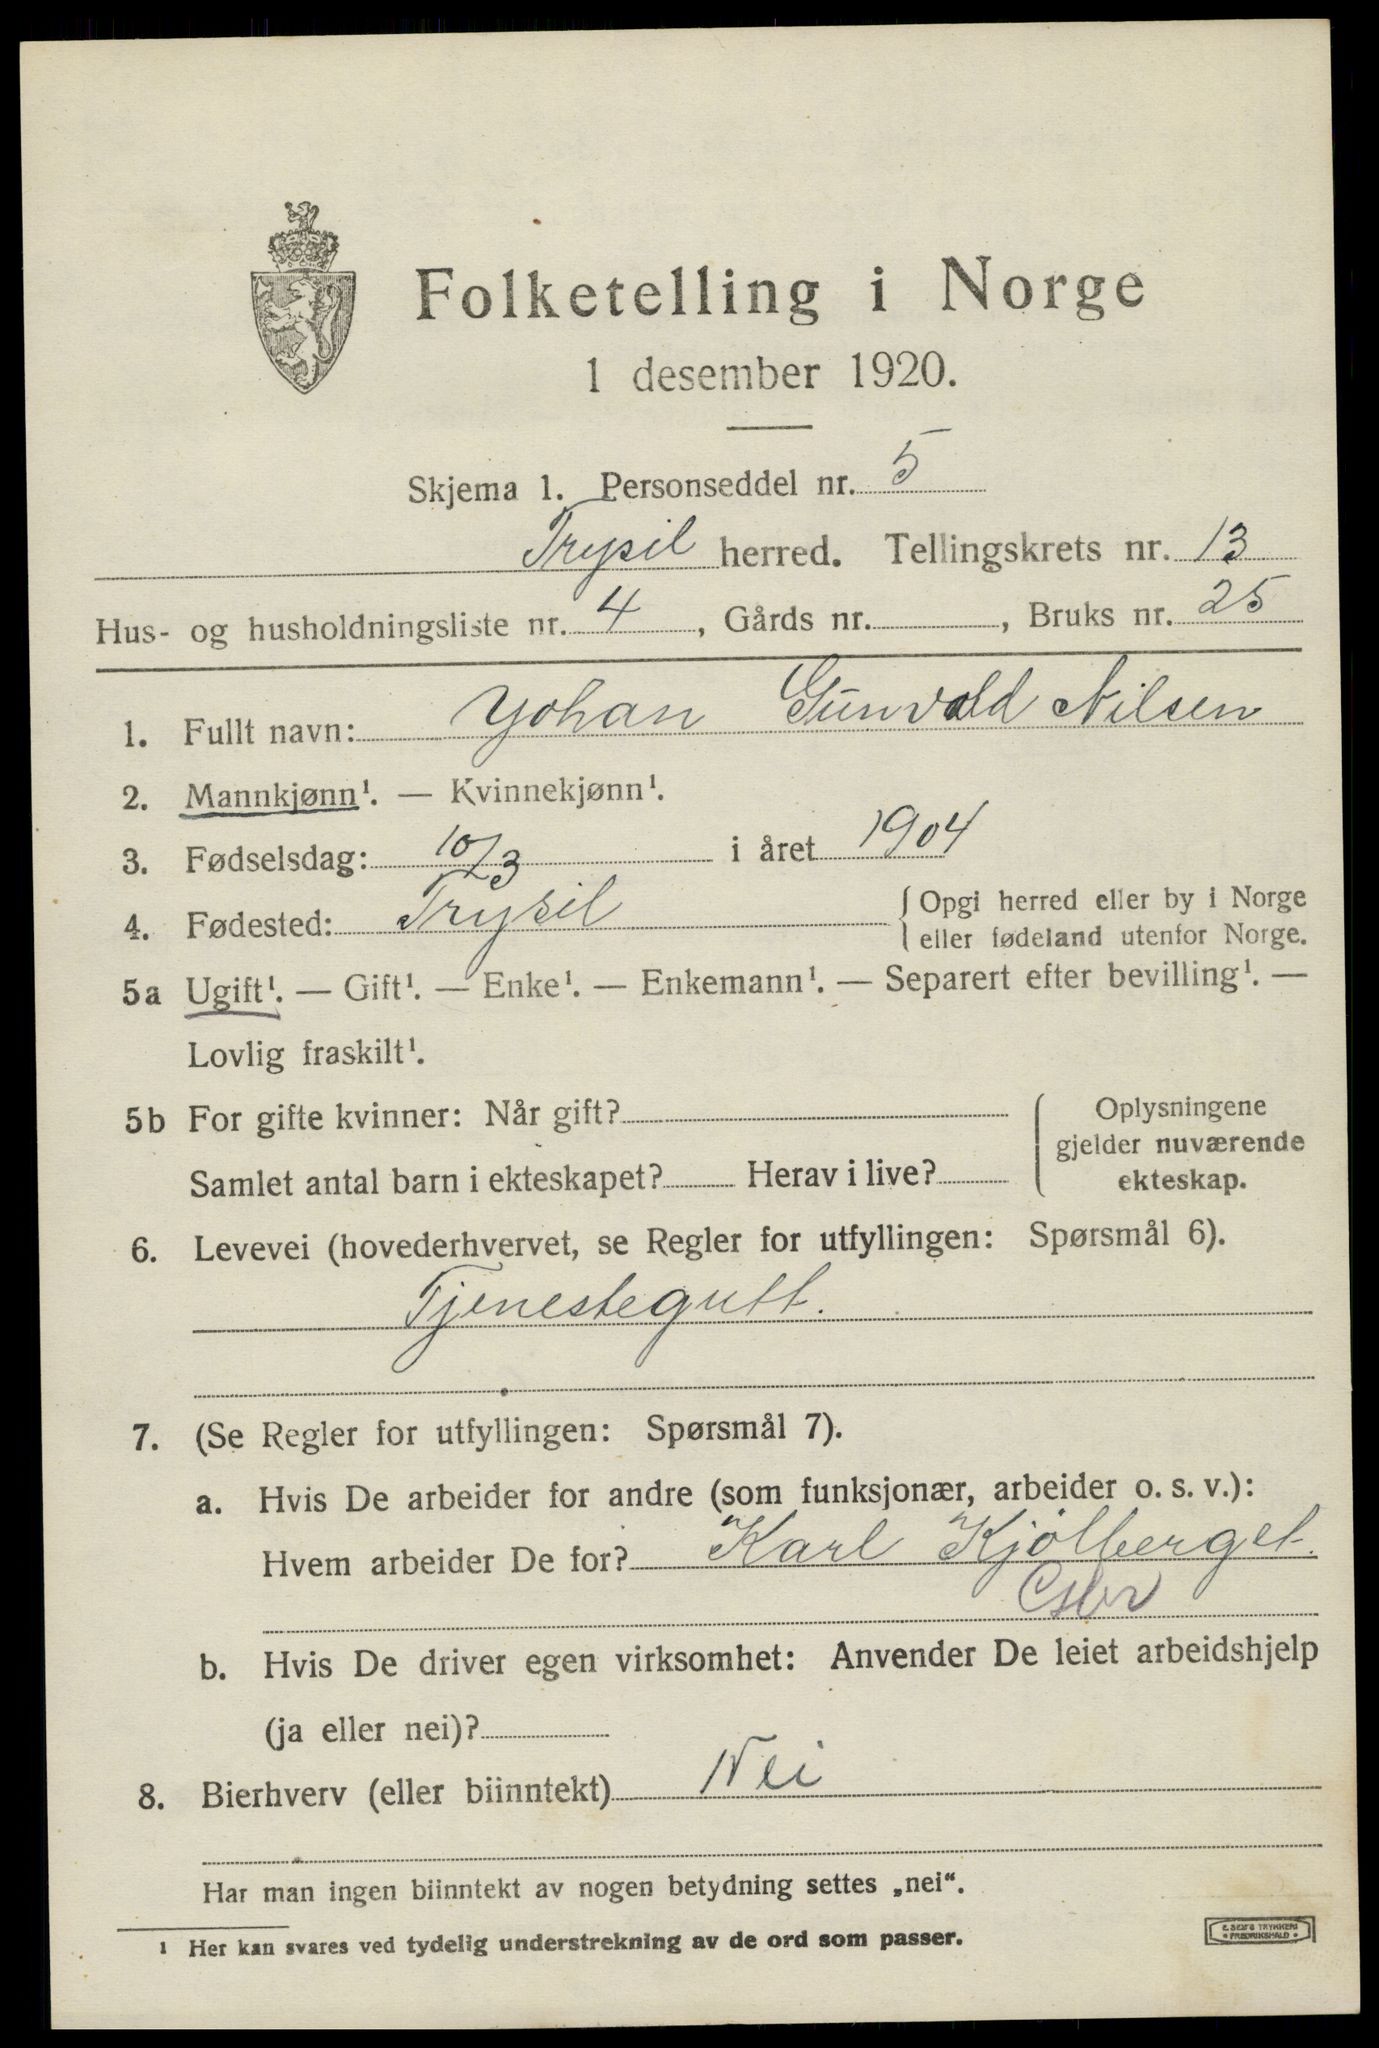 Folketelling i Norge
1 desember 1920.
Skjema 1. Personseddel nr. 5
Trysil herred. Tellingskrets nr. 13
Hus- og husholdningsliste nr. 4, Gårds nr. , Bruks nr. 25
1. Fullt navn: Johan Gunvald Nilsen
2. Mannkjønn¹. — Kvinnekjønn¹.
3. Fødselsdag: 10/3 i året 1904
4. Fødested: Trysil { Opgi herred eller by i Norge
eller fødeland utenfor Norge.
5a Ugift¹. — Gift¹. — Enke¹. — Enkemann¹. — Separert efter bevilling¹. —
Lovlig fraskilt¹.
5b For gifte kvinner: Når gift? { Oplysningene
gjelder nuværende
Samlet antal barn i ekteskapet? Herav i live? ekteskap.
6. Levevei (hovederhvervet, se Regler for utfyllingen: Spørsmål 6).
Tjenestegutt.
7. (Se Regler for utfyllingen: Spørsmål 7).
a. Hvis De arbeider for andre (som funksjonær, arbeider o. s. v.):
Hvem arbeider De for? Karl Kjölberget.
b. Hvis De driver egen virksomhet: Anvender De leiet arbeidshjelp
(ja eller nei)?
8. Bierhverv (eller biinntekt) Nei
Har man ingen biinntekt av nogen betydning settes „nei“.
¹ Her kan svares ved tydelig understrekning av de ord som passer.
E. SEMS TRYKKERI
FREDRIKSHALD